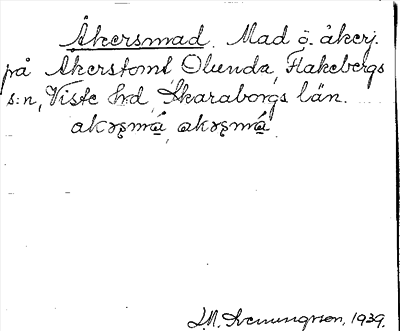 Åkersmad. Mad ö. åkerj.
på Åkerstomt Olunda, Flakebergs
s:n, Viste hrd, Skaraborgs län.
J.M. Svenungsson, 1939.